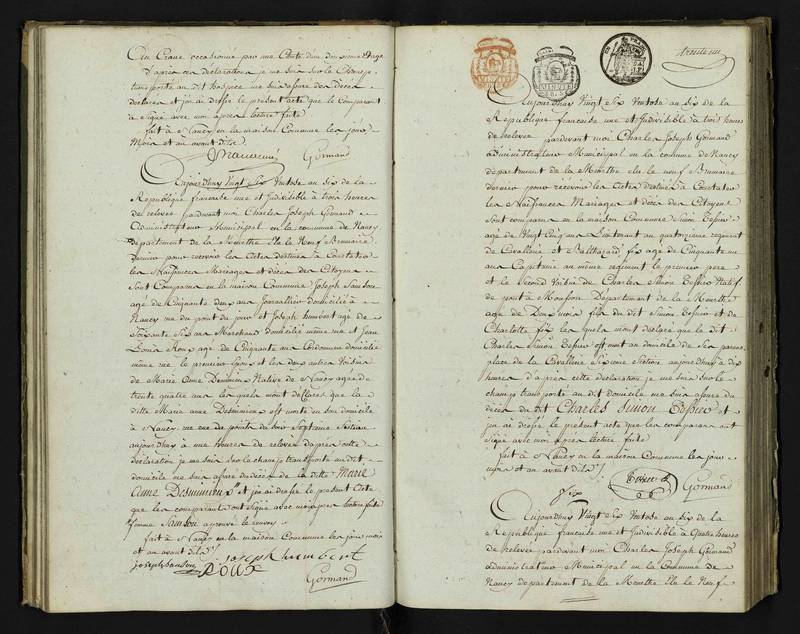 d'apres ces declarations je me suis sur le champ
transporté au dit hospice me suis assuré du deces
declaré et j'en ai dressé le present acte que le comparant
a signé avec moi apres lecture faite
fait à Nancy en la maison Commune les jour
Mois et an avant dits
Gormand
Aujourdhuy Vingt Six Ventose an six de la
République française une et Indivisible à trois heures
de relevée pardevant moi Charles Joseph Gormand
Administrateur Municipal en la commune de Nancy
département de la Meurthe élu le Neuf Brumaire
dernier pour recevoir les Actes destinés à Constater
les Naissances Mariages et décès des Citoyens
Sont Comparus en la maison Commune Joseph Sanson
agé de Cinquante deux ans Journallier domicilié à
Nancy rue du point du jour et Joseph humbert agé de
Soixante Six ans Marchand domicilié même rue et Jean
Louis Roux agé de Cinquante ans Cordonnier domicilié
même rue le premier Epoux et les deux autres Voisins
de Marie Anne Desmunien Native de Nancy agée de
trente quatre ans les quels m'ont déclaré que la
ditte Marie anne Desmunien est morte en son domicile
à Nancy rue du point du jour Septieme Section
aujourdhuy à une heure de relevée d'apres cette
déclaration je me suis sur le champ transporté au dit
domicile me suis assuré du décès de la ditte Marie
Anne Desmunien et j'en ai dressé le present Acte
que les comparants ont signé avec moi apres lecture faite
femme Sanson approuvé le renvoy
fait à Nancy en la maison Commune les jour mois
et an avant dits
joseph sanson
joseph humbert
Roux
Gormand
Aujourdhuy Vingt Six Ventose an six de la
République française une et Indivisible à trois heures
de relevée pardevant moi Charles Joseph Gormand
administrateur Municipal en la commune de Nancy
département de la Meurthe élu le neuf Brumaire
dernier pour recevoir les Actes destinés à Constater
les Naissances Mariages et décès des Citoyens
Sont comparus en la maison Commune Simon Tessier
agé de Vingt Cinq ans Lieutenant au quatorzieme regiment
de Cavallerie et Balthazard fix agé de Cinquante un
ans Capitaine au même regiment le premier pere
et le Second Voisin de Charles Simon Tessier Natif
de pont à Mousson Département de la Meurthe
agé de Deux mois fils du dit Simon Tessier et de
Charlotte fix les quels m'ont déclaré que le dit
Charles Simon Tessier est mort au domicile de ses parens
place de la Cavallerie Sixieme Section aujourdhuy à dix
heures d'après cette déclaration je me suis sur le
champ transporté au dit domicile me suis assuré du
décès du dit Charles Simon Tessier et
j'en ai dressé le présent acte que les comparans ont
signé avec moi apres lecture faite
fait à Nancy en la maison Commune les jour
mois et an avant dits
Tessier
fix
Gormand
Aujourdhuy Vingt Six Ventose an six de la
République française une et Indivisible à Quatre heures
de relevée pardevant moi Charles Joseph Gormand
administrateur Municipal en la Commune de
Nancy département de la Meurthe élu le Neuf